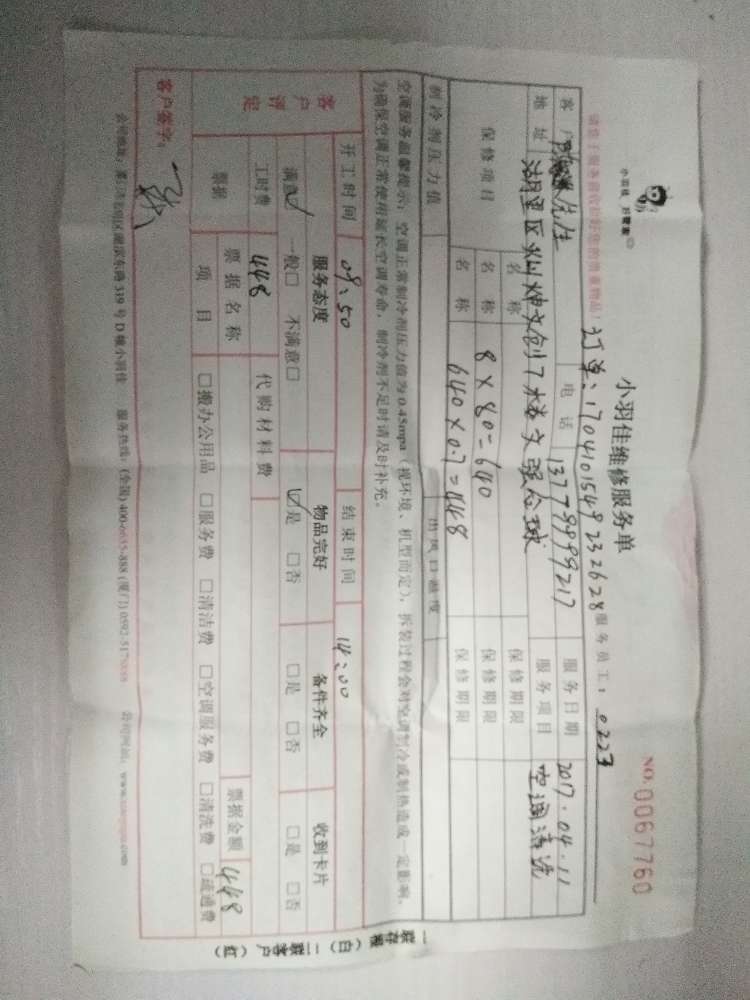 小羽佳维修服务单
NO. 0067760
小羽佳 好管家
请您于服务前收好您的贵重物品！
订单：1704101549232628
服务员工：0223
客户 先生 电话 13779999217 服务日期 2017.04.11
地址 湖里区 文创 楼文 服务项目 空调清洗
保修项目 名称 保修期限
名称 8×80=640 保修期限
名称 640×0.7=448 保修期限
制冷剂压力值 出风口温度
空调服务温馨提示：空调正常制冷剂压力值为0.45mpa（视环境、机型而定），拆装过程会对空调制冷或制热造成一定影响，
为确保空调正常使用延长空调寿命，制冷剂不足时请及时补充。
开工时间 09:50 结束时间 14:00
客户评定 服务态度 物品完好 备件齐全 收到卡片
满意☑ 一般□ 不满意□ ☑是 □否 □是 □否 □是 □否
工时费 448 代购材料费
票据 票据名称 票据金额 448
项目 □搬办公用品 □服务费 □清洁费 □空调服务费 □清洗费 □疏通费
客户签字：
319号D幢小羽佳 服务热线：(全国) 400-6635-888 (厦门) 0592-5170888 公司网站：
一联存根（白） 二联客户（红）